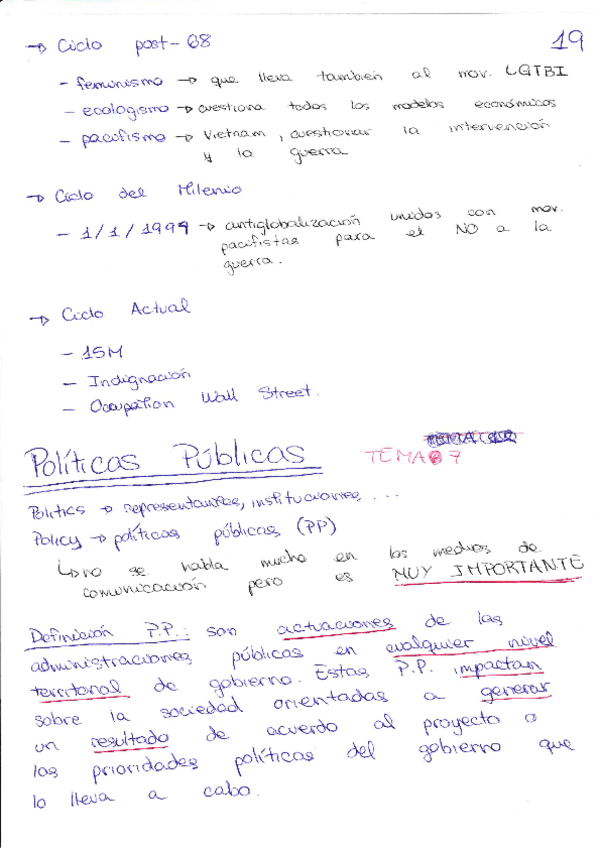 → Ciclo post-68
19
- feminismo → que lleva también al mov. LGTBI
- ecologismo → cuestiona todos los modelos económicos
- pacifismo → Vietnam, cuestionar la intervención
y la guerra
→ Ciclo del Milenio
- 1/1/1999 → antiglobalización unidos con mov.
pacifistas para el NO a la
guerra.
→ Ciclo Actual
- 15M
- Indignación
- Occupation Wall Street.
Políticas Públicas
TEMA 7
Politics → representantes, instituciones ...
Policy → políticas públicas (PP)
↳ no se habla mucho en los medios de
comunicación pero es MUY IMPORTANTE
Definición P.P.: son actuaciones de las
administraciones públicas en cualquier nivel
territorial de gobierno. Estas P.P. impactan
sobre la sociedad orientadas a generar
un resultado de acuerdo al proyecto o
las prioridades políticas del gobierno que
lo lleva a cabo.